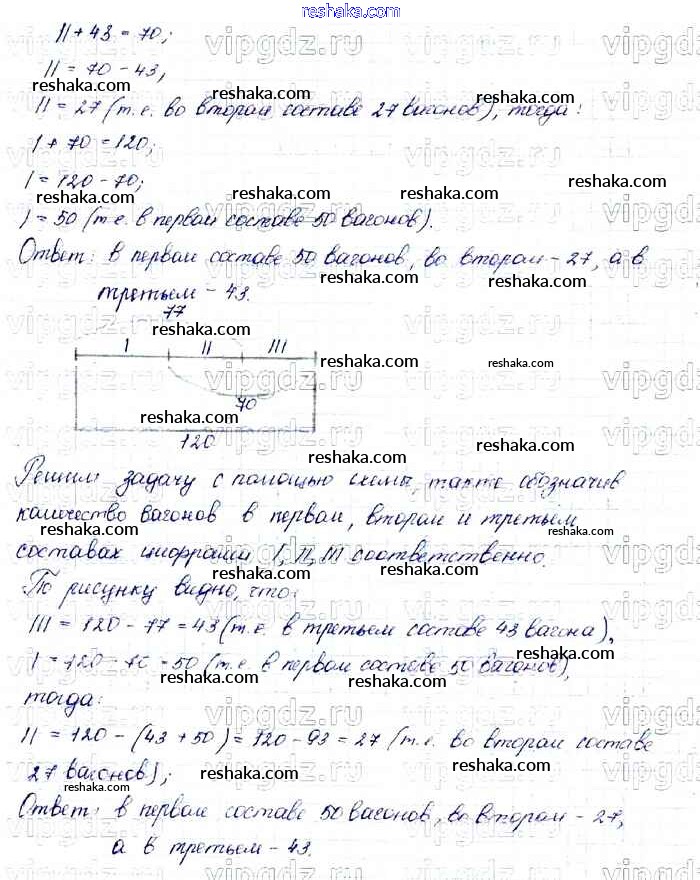 reshaka.com
II + 43 = 70;
II = 70 - 43,
II = 27 (т.е. во втором составе 27 вагонов), тогда:
I + 70 = 120;
I = 120 - 70;
I = 50 (т.е. в первом составе 50 вагонов).
Ответ: в первом составе 50 вагонов, во втором - 27, а в
третьем - 43.
77
I II III
70
120
Решим задачу с помощью схемы, также обозначив
количество вагонов в первом, втором и третьем
составах цифрами I, II, III соответственно.
По рисунку видно, что:
III = 120 - 77 = 43 (т.е. в третьем составе 43 вагона),
I = 120 - 70 = 50 (т.е. в первом составе 50 вагонов),
тогда:
II = 120 - (43 + 50) = 120 - 93 = 27 (т.е. во втором составе
27 вагонов);
Ответ: в первом составе 50 вагонов, во втором - 27,
а в третьем - 43.